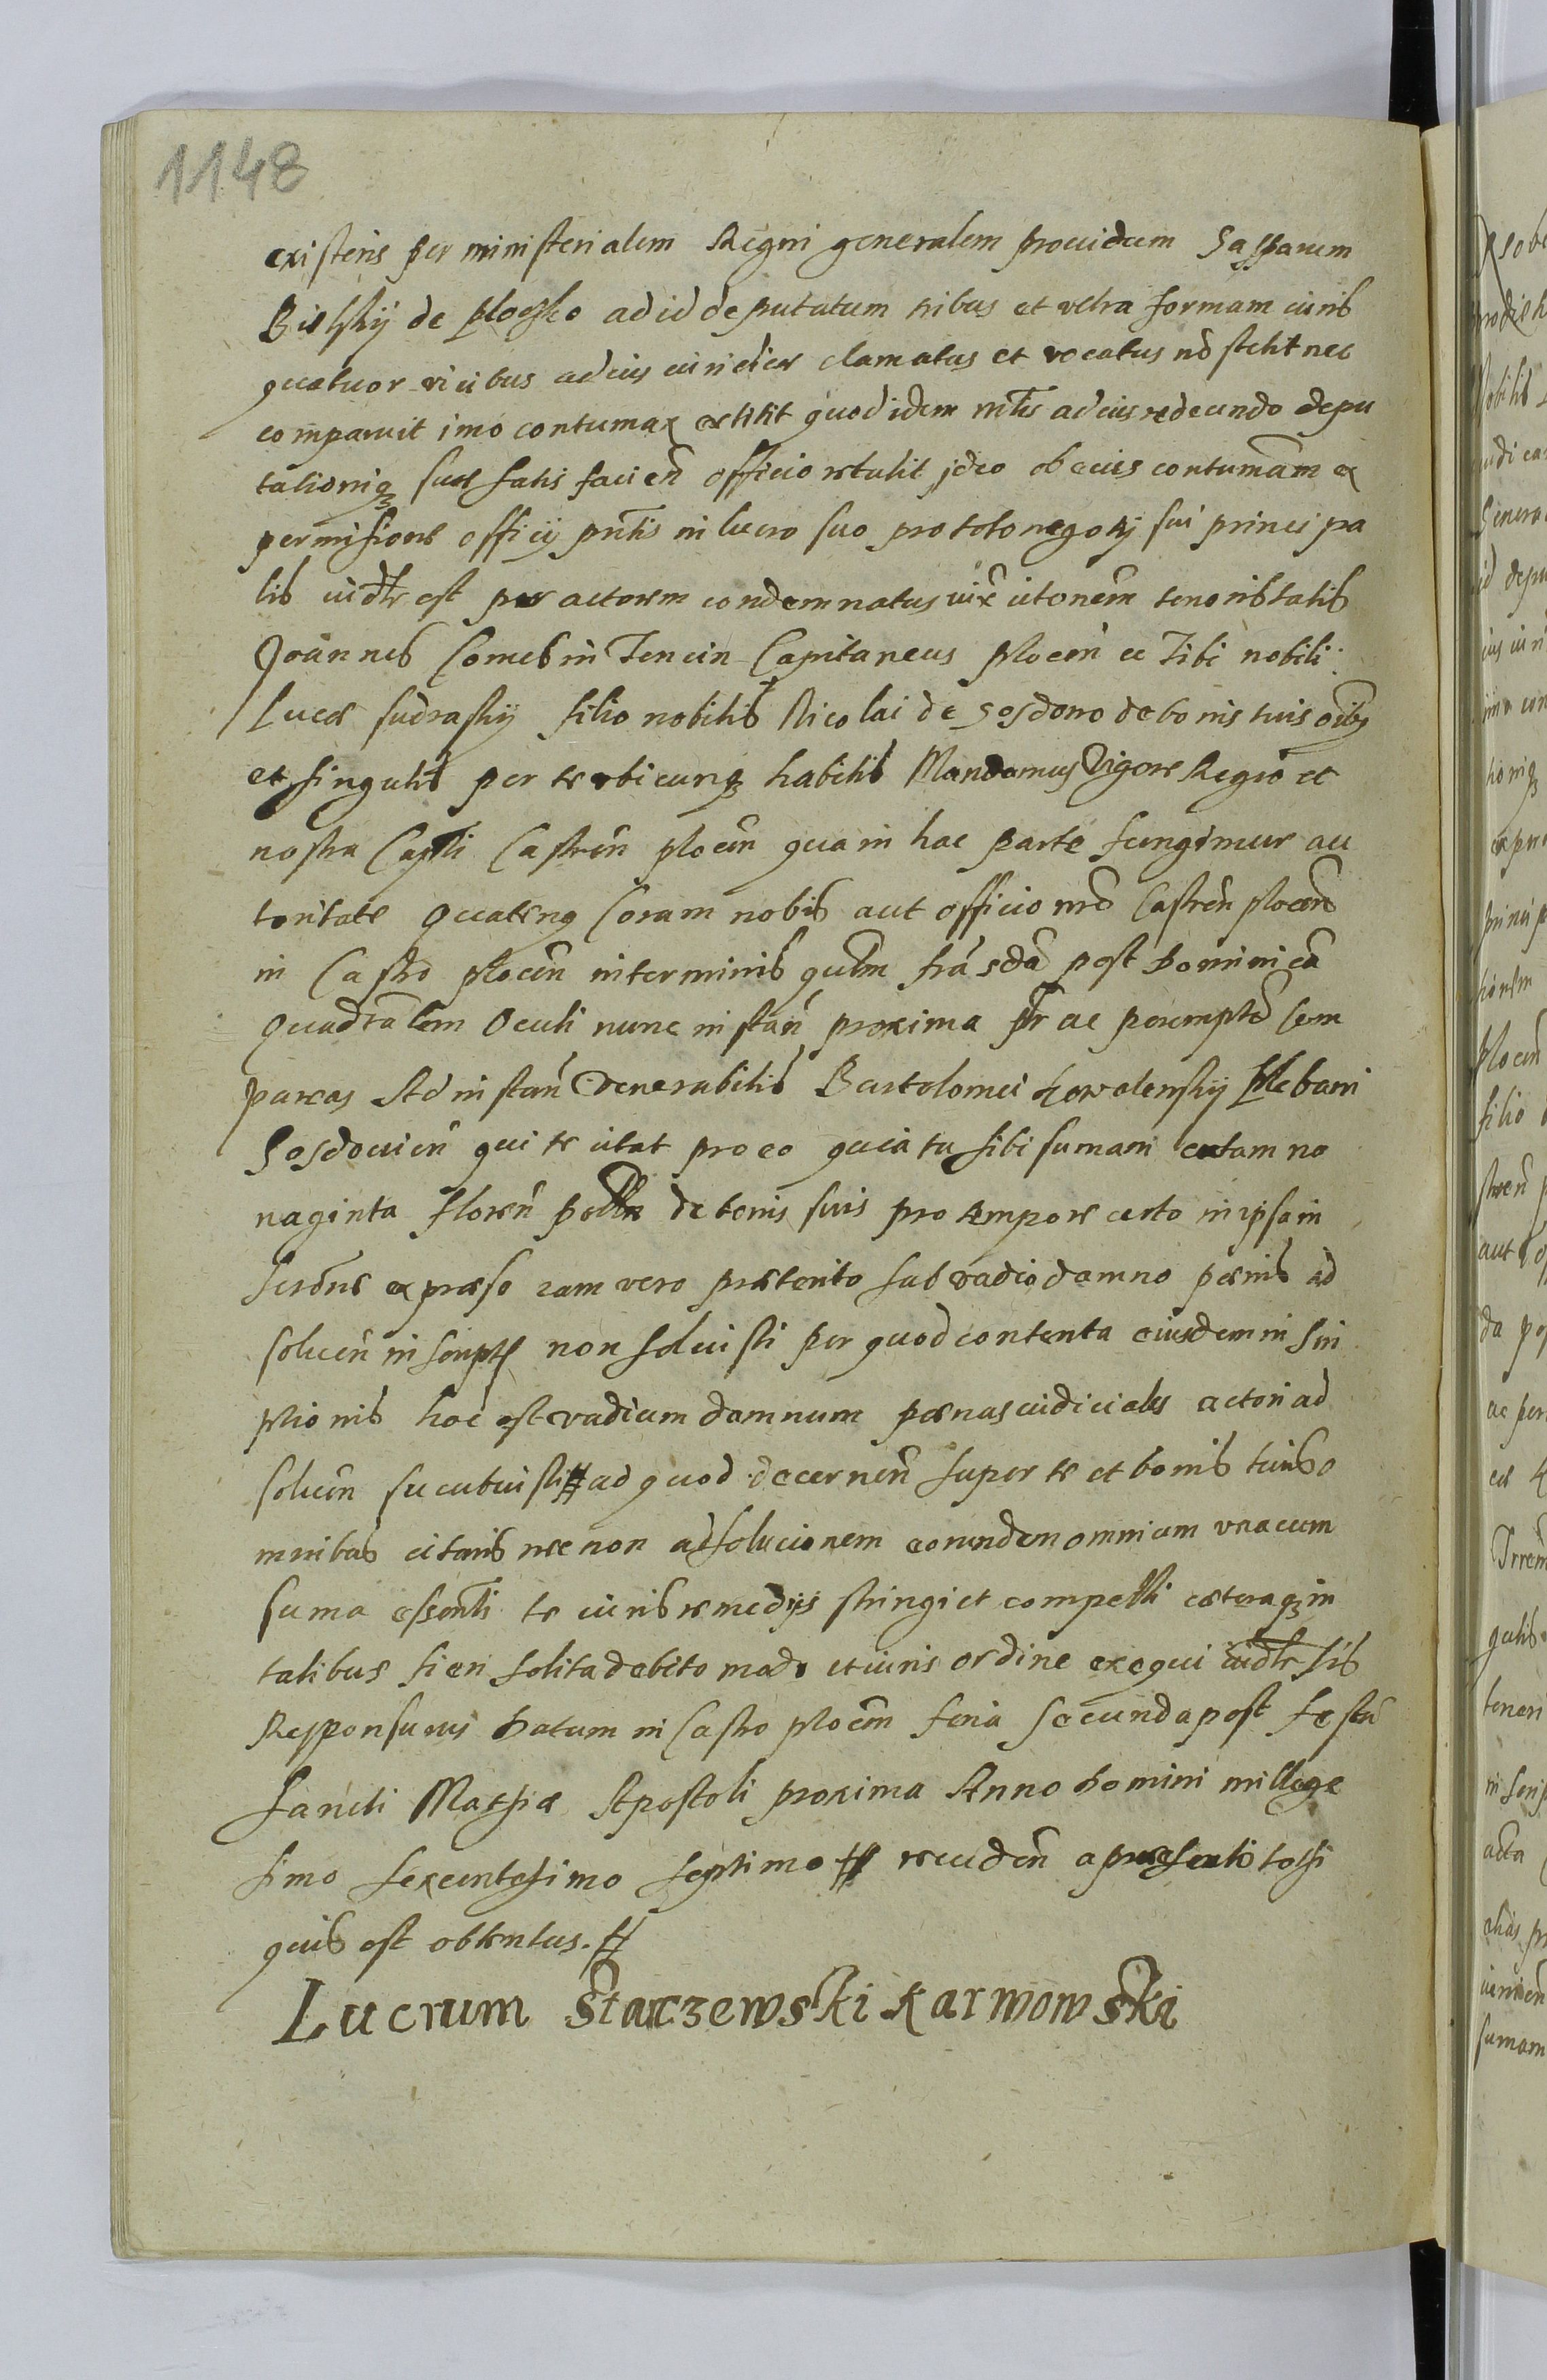 1148
existens per ministerialem Regni generalem prouidum Gasparum
Bielskij de Plocsko ad id deputatum tribus et vltra formam iuris
quatuor vicibus ad ius iuridice clamatus et vocatus nō stetit nec
comparuit imo contumax extitit quod idem mtis ad ius redeundo depu
tationiq suae satis facien̄ officio retulit ideo ob eius contumām ex
permissione officij pntis in lucro suo pro toto negotij sui principa
lis vidlr est per actorem condemnatus iux citonem tenoris talis
Joannes Comes in Tencin Capitaneus Plocen̄ ec Tibi nobili
Lucae Sudraskij filio nobilis Nicolai de Gosdowo de bonis tuis oibq
et singulis per te vbicunq habitis Mandamus Vigore Regio et
nostra Capti Castren̄ Plocen̄ qua in hac parte fungimur au
toritate Quatenq Coram nobis aut officio nro Castren̄ Plocen̄
in Castro Plocen̄ in terminis qulm fria sda post Dominicā
Quadralem Oculi nunc instan̄ proxima ptr ac perempte com
pareas Ad instan̄ Venerabilis Bartolomei Kowalenskij Plebani
Gosdouien̄ qui te citat pro eo quia tu sibi sumam centam no
naginta floren̄ polln de tenis suis pro tempore certo in ipsa in
scrōne expresso iam vero praeterito sub vadio damno paenis ad
soluen̄ inscripts non soluisti per quod contenta eiusdem inscri
ptionis hoc est vadium damnum paenas iudiciales actori ad
soluen̄ sucubuisti # ad quod decernen̄ super te et bonis tuis o
mnibus citaris nec non ad solucionem eorundem omnium vna cum
suma essenti te iuris remedijs stringi et compelli caeteraq in
talibus fieri solita debito modo et iuris ordine exequi vidlr sis
Responsurus Datum in Castro Plocen̄ feria secunda post festū
Sancti Mathiae Apostoli proxima Anno Domini millege
simo sexcentesimo septimo # euiden̄ a praesenti
quis est obtentus. #
Lucrum Starczewski Karwowski